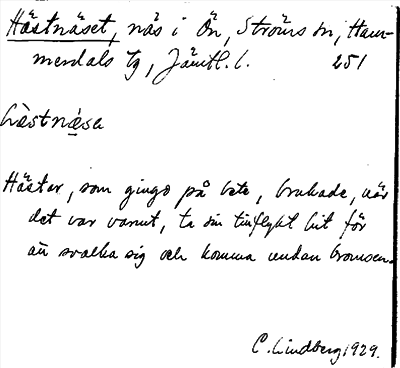 Hästnäset, näs i Ön, Ströms sn, Ham-
merdals tg, Jämtl. l. 251
hästnä̀sə
Hästar, som gingo på bete, brukade, när
det var varmt, ta sin tillflykt hit för
att svalka sig och komma undan bromsen.
C. Lindberg 1929.